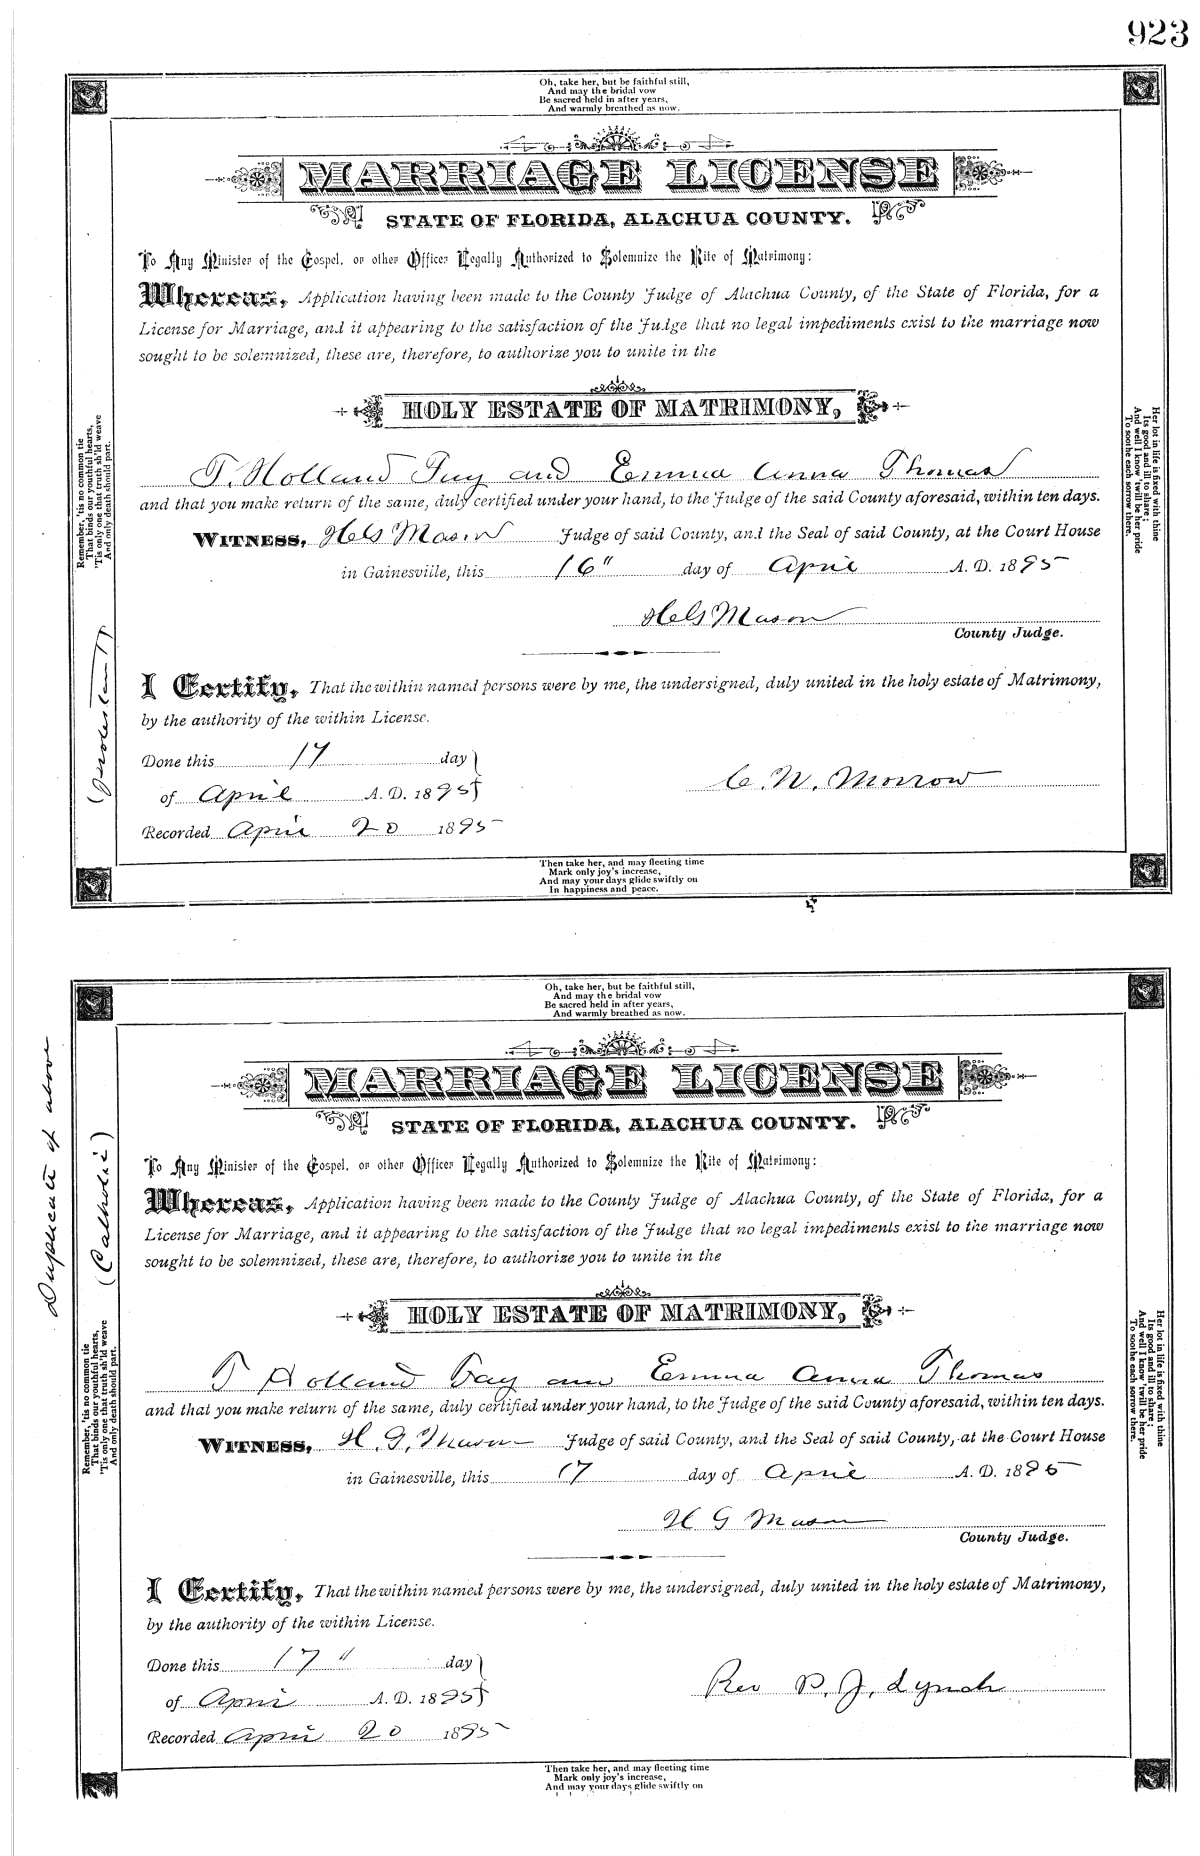 923
Oh, take her, but be faithful still,
And may the bridal vow
Be sacred held in after years,
And warmly breathed as now.
MARRIAGE LICENSE
STATE OF FLORIDA, ALACHUA COUNTY.
To Any Minister of the Gospel, or other Officer Legally Authorized to Solemnize the Rite of Matrimony:
Whereas, Application having been made to the County Judge of Alachua County, of the State of Florida, for a
License for Marriage, and it appearing to the satisfaction of the Judge that no legal impediments exist to the marriage now
sought to be solemnized, these are, therefore, to authorize you to unite in the
HOLY ESTATE OF MATRIMONY,
T. Holland Fay and Emma Anna Thomas
and that you make return of the same, duly certified under your hand, to the Judge of the said County aforesaid, within ten days.
WITNESS, H G Mason Judge of said County, and the Seal of said County, at the Court House
in Gainesville, this 16" day of April A. D. 1895
H G Mason
County Judge.
I Certify, That the within named persons were by me, the undersigned, duly united in the holy estate of Matrimony,
by the authority of the within License.
Done this 17 day
of April A. D. 1895
C. W. Morrow
Recorded April 20 1895
Then take her, and may fleeting time
Mark only joy's increase,
And may your days glide swiftly on
In happiness and peace.
Remember, 'tis no common tie
That binds our youthful hearts,
'Tis only one that truth sh'ld weave
And only death should part.
(Protestant)
Her lot in life is fixed with thine
Its good and ill to share;
And well I know 'twill be her pride
To soothe each sorrow there.
Oh, take her, but be faithful still,
And may the bridal vow
Be sacred held in after years,
And warmly breathed as now.
MARRIAGE LICENSE
STATE OF FLORIDA, ALACHUA COUNTY.
To Any Minister of the Gospel, or other Officer Legally Authorized to Solemnize the Rite of Matrimony:
Whereas, Application having been made to the County Judge of Alachua County, of the State of Florida, for a
License for Marriage, and it appearing to the satisfaction of the Judge that no legal impediments exist to the marriage now
sought to be solemnized, these are, therefore, to authorize you to unite in the
HOLY ESTATE OF MATRIMONY,
T Holland Fay and Emma Anna Thomas
and that you make return of the same, duly certified under your hand, to the Judge of the said County aforesaid, within ten days.
WITNESS, H. G. Mason Judge of said County, and the Seal of said County, at the Court House
in Gainesville, this 17 day of April A. D. 1895
H G Mason
County Judge.
I Certify, That the within named persons were by me, the undersigned, duly united in the holy estate of Matrimony,
by the authority of the within License.
Done this 17" day
of April A. D. 1895
Rev P. J. Lynch
Recorded April 20 1895
Then take her, and may fleeting time
Mark only joy's increase,
And may your days glide swiftly on
Duplicate of above
(Catholic)
Remember, 'tis no common tie
That binds our youthful hearts,
'Tis only one that truth sh'ld weave
And only death should part.
Her lot in life is fixed with thine
Its good and ill to share;
And well I know 'twill be her pride
To soothe each sorrow there.